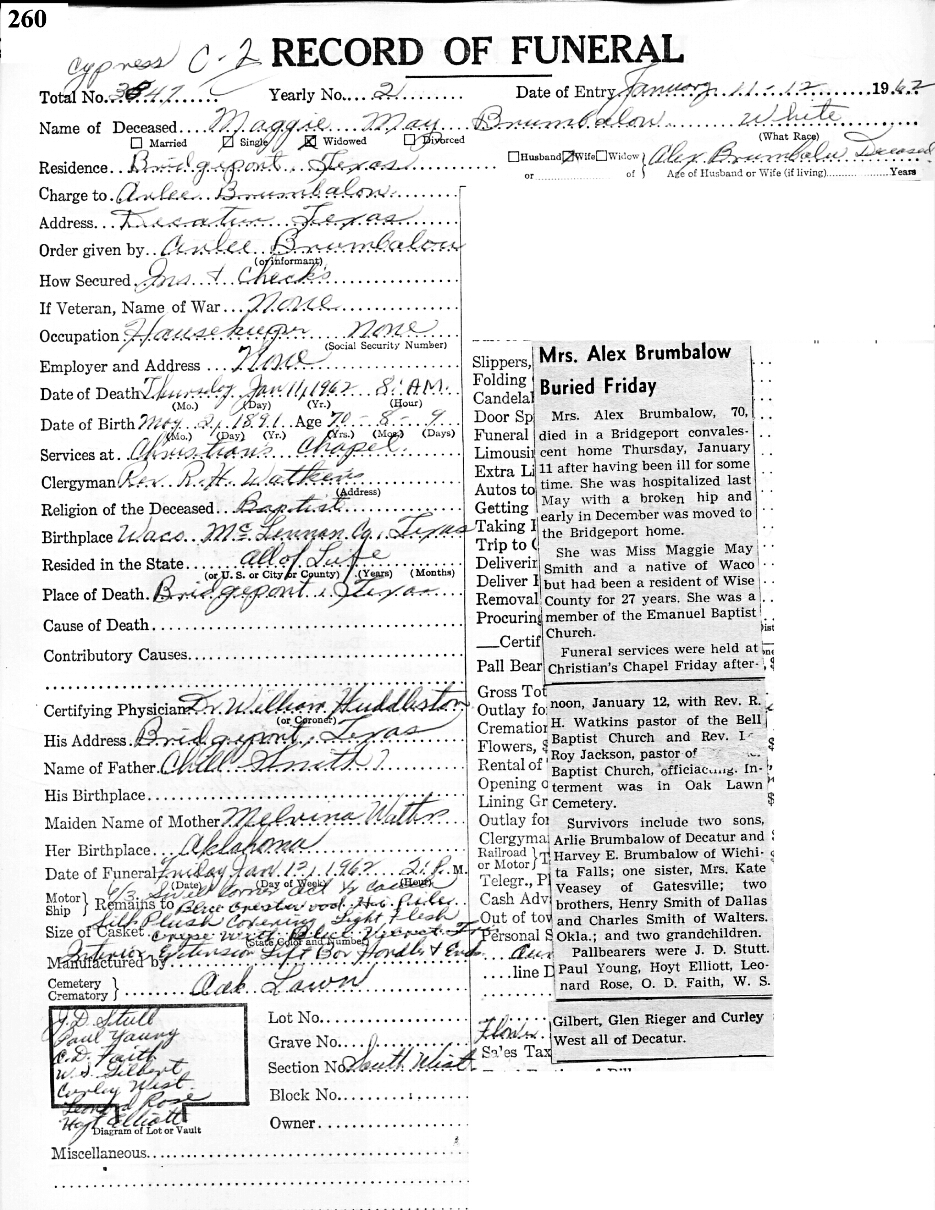 260
Cypress C-2
RECORD OF FUNERAL
Total No. 3847 Yearly No. 2 Date of Entry January 11-12 1962
Name of Deceased Maggie May Brumbalow White
(What Race)
Married Single Widowed Divorced
Residence Bridgeport, Texas
Husband Wife Widow Alex Brumbalow Deceased
or of Age of Husband or Wife (if living) Years
Charge to Arlee Brumbalow
Address Decatur Texas
Order given by Arlee Brumbalow
(or informant)
How Secured Ins & Checks
If Veteran, Name of War None
Occupation Housekeeper None
(Social Security Number)
Employer and Address None
Date of Death Thursday Jan 11, 1962 8: A.M.
(Mo.) (Day) (Yr.) (Hour)
Date of Birth May 2, 1891 Age 70-8-9
(Mo.) (Day) (Yr.) (Yrs.) (Mos.) (Days)
Services at Christians Chapel
Clergyman Rev. R. H. Watkins
(Address)
Religion of the Deceased Baptist
Birthplace Waco McLennan Co, Texas
Resided in the State all of Life
(or U. S. or City or County) (Years) (Months)
Place of Death Bridgeport, Texas
Cause of Death
Contributory Causes
Certifying Physician Dr William Huddleston
(or Coroner)
His Address Bridgeport, Texas
Name of Father Smith
His Birthplace
Maiden Name of Mother Melvina
Her Birthplace Oklahoma
Date of Funeral Friday Jan 12, 1962 2: P. M.
(Date) (Day of Week) (Hour)
Motor
Ship
Remains to
Size of Casket
Silk Plush Covering Light Flesh
(State Color and Number)
Interior Extension Lift Bar Handles & Ends
Manufactured by
Cemetery
Crematory
Oak Lawn
J.D. Stull
Paul Young
O.D. Faith
W.S. Gilbert
Curley West
Leonard Rose
Hoyt Elliott
Diagram of Lot or Vault
Lot No.
Grave No.
Section No. South West
Block No.
Owner
Miscellaneous
Slippers,
Folding
Candela
Door Sp
Funeral
Limousi
Extra Li
Autos to
Getting
Taking
Trip to
Deliverin
Deliver
Removal
Procuring
Certif
Pall Bear
Gross Tot
Outlay fo
Crematio
Flowers, $
Rental of
Opening o
Lining Gr
Outlay for
Clergyma
Railroad
or Motor
Telegr., P
Cash Adv
Out of tow
Personal S
line D
Sales Tax
Mrs. Alex Brumbalow
Buried Friday
Mrs. Alex Brumbalow, 70,
died in a Bridgeport convales-
cent home Thursday, January
11 after having been ill for some
time. She was hospitalized last
May with a broken hip and
early in December was moved to
the Bridgeport home.
She was Miss Maggie May
Smith and a native of Waco
but had been a resident of Wise
County for 27 years. She was a
member of the Emanuel Baptist
Church.
Funeral services were held at
Christian's Chapel Friday after-
noon, January 12, with Rev. R.
H. Watkins pastor of the Bell
Baptist Church and Rev.
Roy Jackson, pastor of
Baptist Church, officiating. In-
terment was in Oak Lawn
Cemetery.
Survivors include two sons,
Arlie Brumbalow of Decatur and
Harvey E. Brumbalow of Wichi-
ta Falls; one sister, Mrs. Kate
Veasey of Gatesville; two
brothers, Henry Smith of Dallas
and Charles Smith of Walters.
Okla.; and two grandchildren.
Pallbearers were J. D. Stutt.
Paul Young, Hoyt Elliott, Leo-
nard Rose, O. D. Faith, W. S.
Gilbert, Glen Rieger and Curley
West all of Decatur.